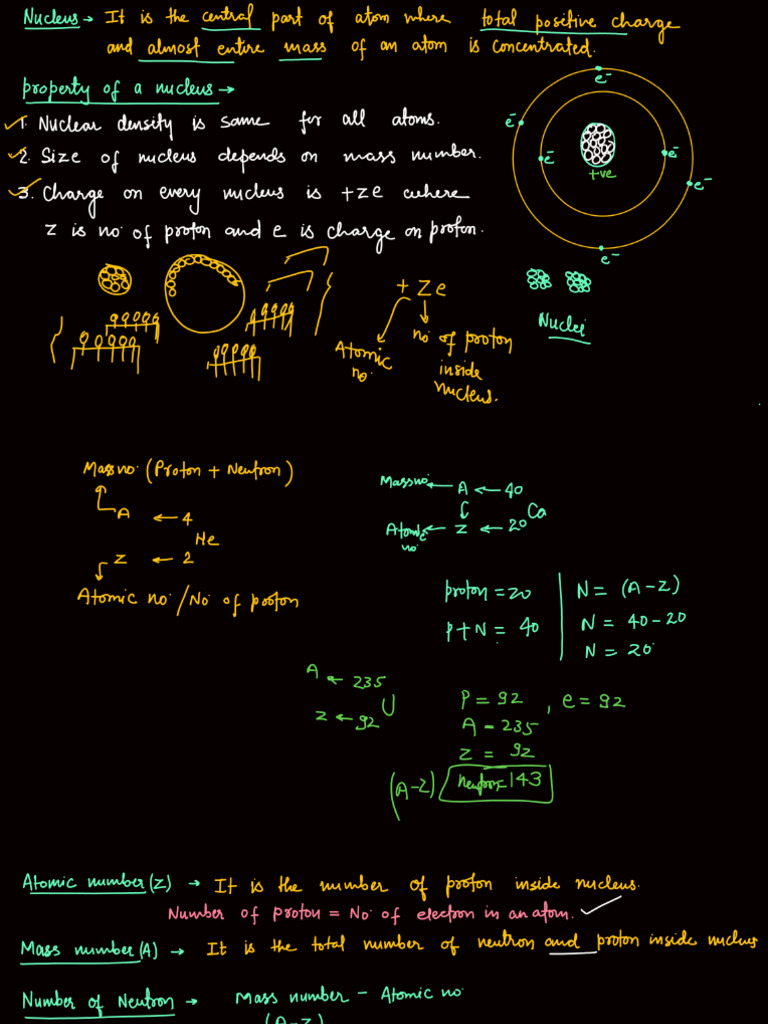 Nucleus → It is the central part of atom where total positive charge
and almost entire mass of an atom is concentrated.
property of a nucleus →
1. Nuclear density is same for all atoms.
2. Size of nucleus depends on mass number.
3. Charge on every nucleus is +ze where
z is no. of proton and e is charge on proton.
e⁻
e⁻
e⁻
e⁻
e⁻
e⁻
+ve
Nuclei
+ Ze
Atomic no.
no of proton
inside
nucleus.
Mass no. (Proton + Neutron)
A ← 4
He
Z ← 2
Atomic no / No of proton
Mass no ← A ← 40
Ca
Atomic no ← Z ← 20
proton = 20
P+N = 40
N = (A-Z)
N = 40-20
N = 20
A ← 235
U
Z ← 92
P = 92, e = 92
A - 235
Z = 92
(A-Z) neutron = 143
Atomic number (Z) → It is the number of proton inside nucleus.
Number of proton = No of electron in an atom.
Mass number (A) → It is the total number of neutron and proton inside nucleus
Number of Neutron → Mass number - Atomic no
(A-Z)